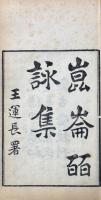 崑崙皕
詠集
王運長署